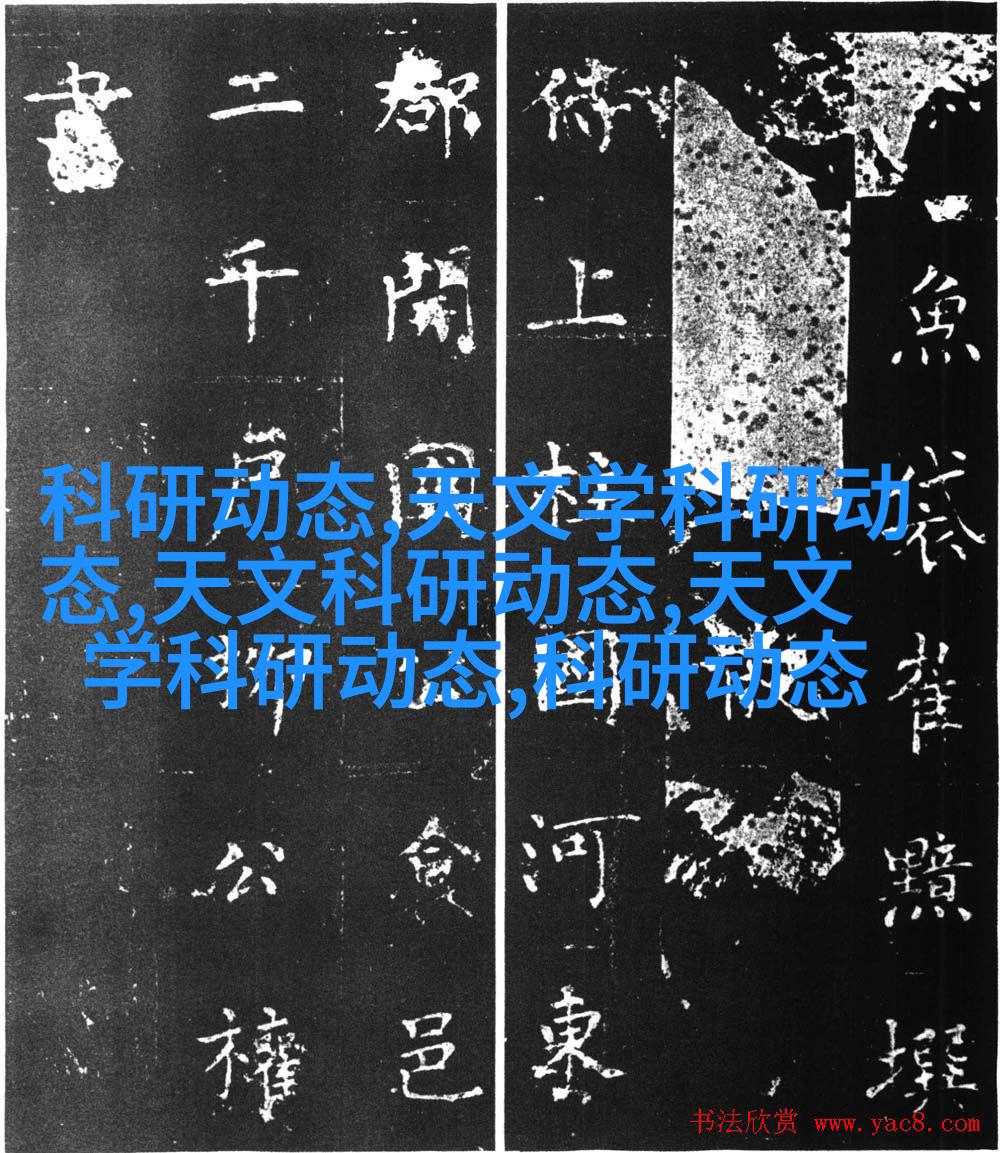 魚袋崔黯撰
侍上柱國河東
郡開國食邑
二千戶柳公權
書
科研动态,天文学科研动
态,天文科研动态,天文
学科研动态,科研动态
书法欣赏 www.yac8.com